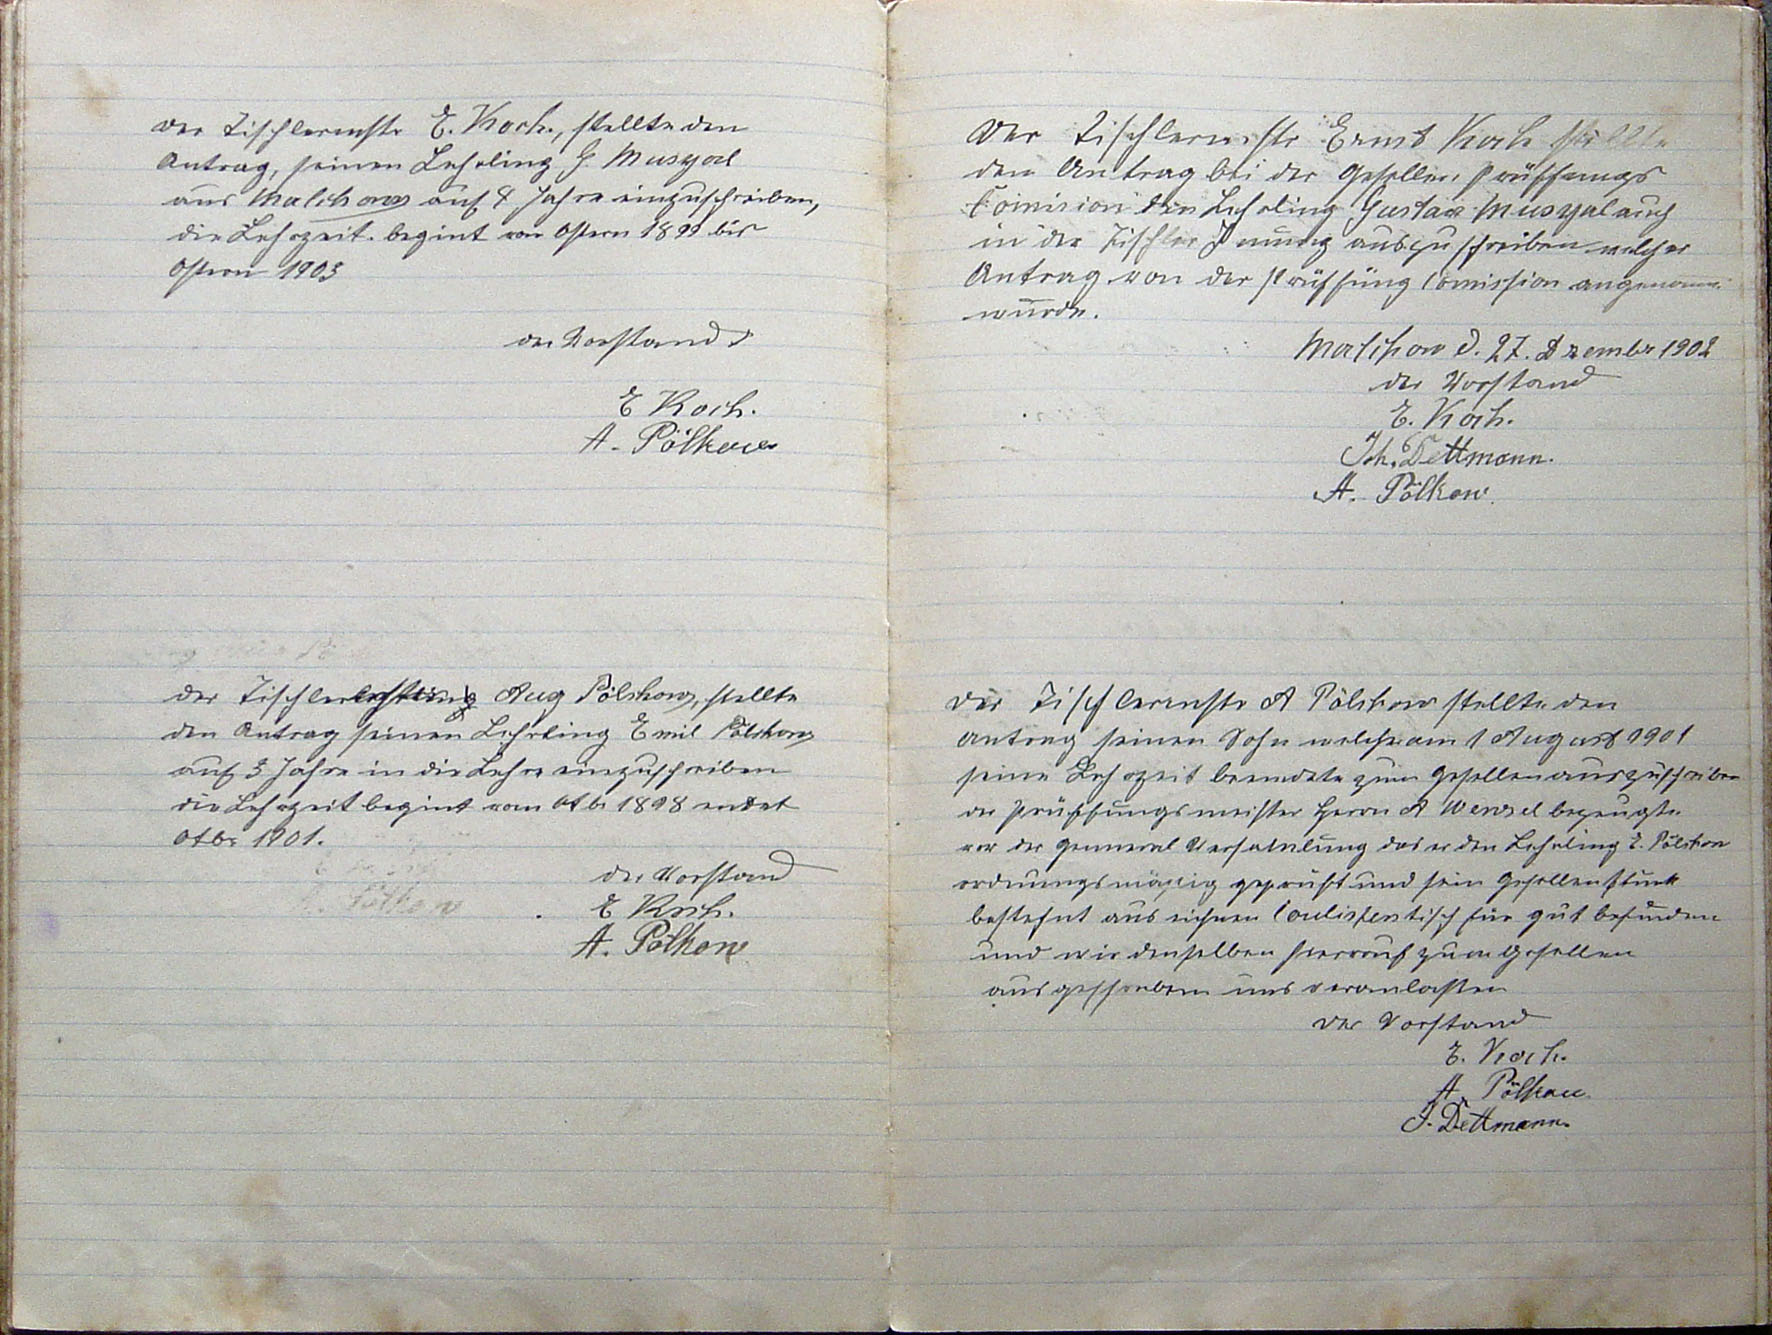 der Tischlermstr E. Koch., stellte den
Antrag, seinen Lehrling G. Musyal
aus Malchow auf 4 Jahre einzuschreiben,
die Lehrzeit begint von Ostern 1899 bis
Ostern 1903
der Vorstand
E Koch.
A. Pölkow
der Tischler Aug Pölskow, stellte
den Antrag seinen Lehrling Emil Pölskow
auf 3 Jahre in die Lehre einzuschreiben
die Lehrzeit begint vom Otbr 1898 endet
Otbr 1901.
der Vorstand
E Koch.
A. Pölkow
Der Tischlermstr Ernst Koch stellte
den Antrag bei der Gesellen Prüffungs
Comision den Lehrling Gustav Musyal auch
in der Tischler Innung auszuschreiben welcher
Antrag von der Prüffung Comission angenomm.
wurde.
Malchow d. 27. Dzember 1902
der Vorstand
E. Koch.
Joh. Dettmann.
A. Pölkow.
Der Tischlermstr A Pölskow stellte den
Antrag seinen Sohn welcher am 1 August 1901
seine Lehrzeit beendete zum Gesellen auszuschreiben
der Prüffungsmeister Herrn A Wenzel bezeugte
vor der General Versamlung das er den Lehrling E. Pölskow
ordnungsmäßig geprüft und sein Gesellenstück
bestehnt aus einen Coulissentisch für gut befunden
und wir denselben hierrauf zum Gesellen
ausgeschrieben uns veranlasten
der Vorstand
E. Koch.
A. Pölkow
J. Dettmann.